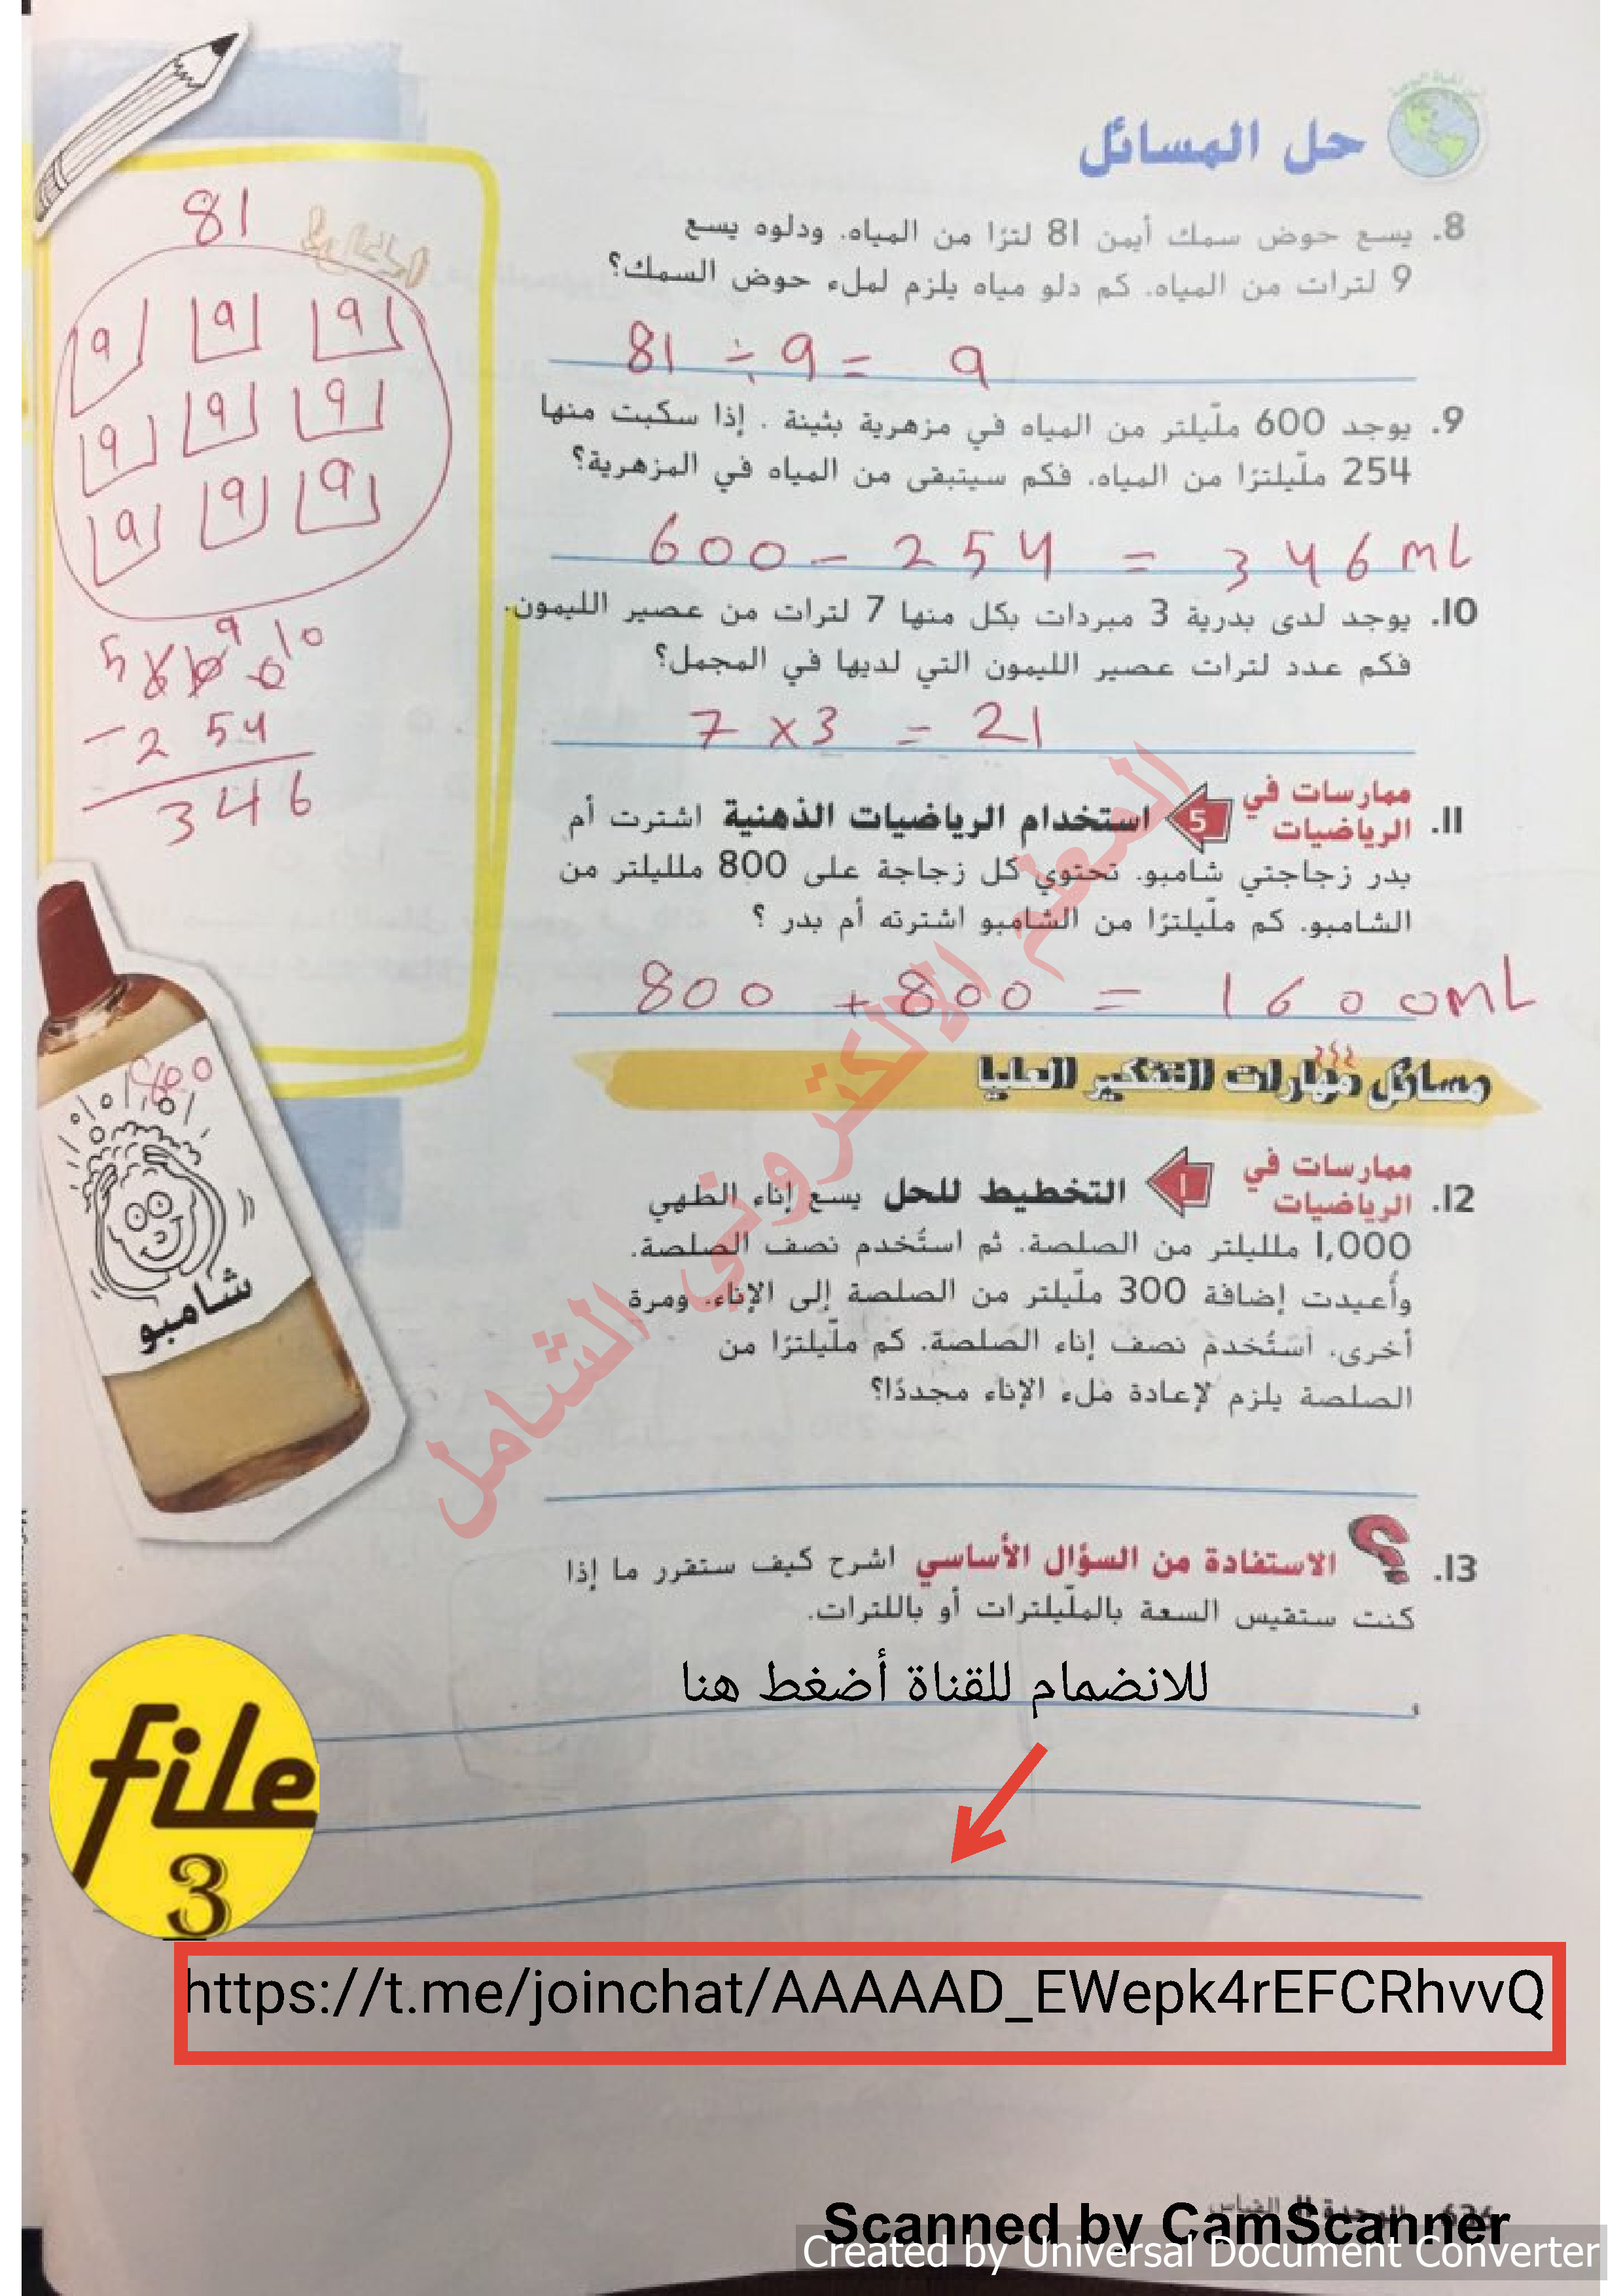 حل المسائل
8. يسع حوض سمك أيمن 81 لترًا من المياه. ودلوه يسع
9 لترات من المياه. كم دلو مياه يلزم لملء حوض السمك؟
81 ÷ 9 = 9
9. يوجد 600 ملّيلتر من المياه في مزهرية بثينة . إذا سكبت منها
254 ملّيلترًا من المياه. فكم سيتبقى من المياه في المزهرية؟
600 - 254 = 346 mL
10. يوجد لدى بدرية 3 مبردات بكل منها 7 لترات من عصير الليمون.
فكم عدد لترات عصير الليمون التي لديها في المجمل؟
7 x 3 = 21
11. ممارسات في الرياضيات 5 استخدام الرياضيات الذهنية اشترت أم
بدر زجاجتي شامبو. تحتوي كل زجاجة على 800 ملليلتر من
الشامبو. كم ملّيلترًا من الشامبو اشترته أم بدر ؟
800 + 800 = 1600 mL
مسائل مهارات التفكير العليا
12. ممارسات في الرياضيات 1 التخطيط للحل يسع إناء الطهي
1,000 ملليلتر من الصلصة. ثم استُخدم نصف الصلصة.
وأُعيدت إضافة 300 ملّيلتر من الصلصة إلى الإناء. ومرة
أخرى. استُخدم نصف إناء الصلصة. كم ملّيلترًا من
الصلصة يلزم لإعادة ملء الإناء مجددًا؟
13. الاستفادة من السؤال الأساسي اشرح كيف ستقرر ما إذا
كنت ستقيس السعة بالملّيلترات أو باللترات.
81
9 9 9
9 9 9
9 9 9
5 9 10
600
- 254
346
800
شامبو
المعلم الالكتروني الشامل
للانضمام للقناة أضغط هنا
file
3
https://t.me/joinchat/AAAAAD_EWepk4rEFCRhvvQ
Scanned by CamScanner
Created by Universal Document Converter